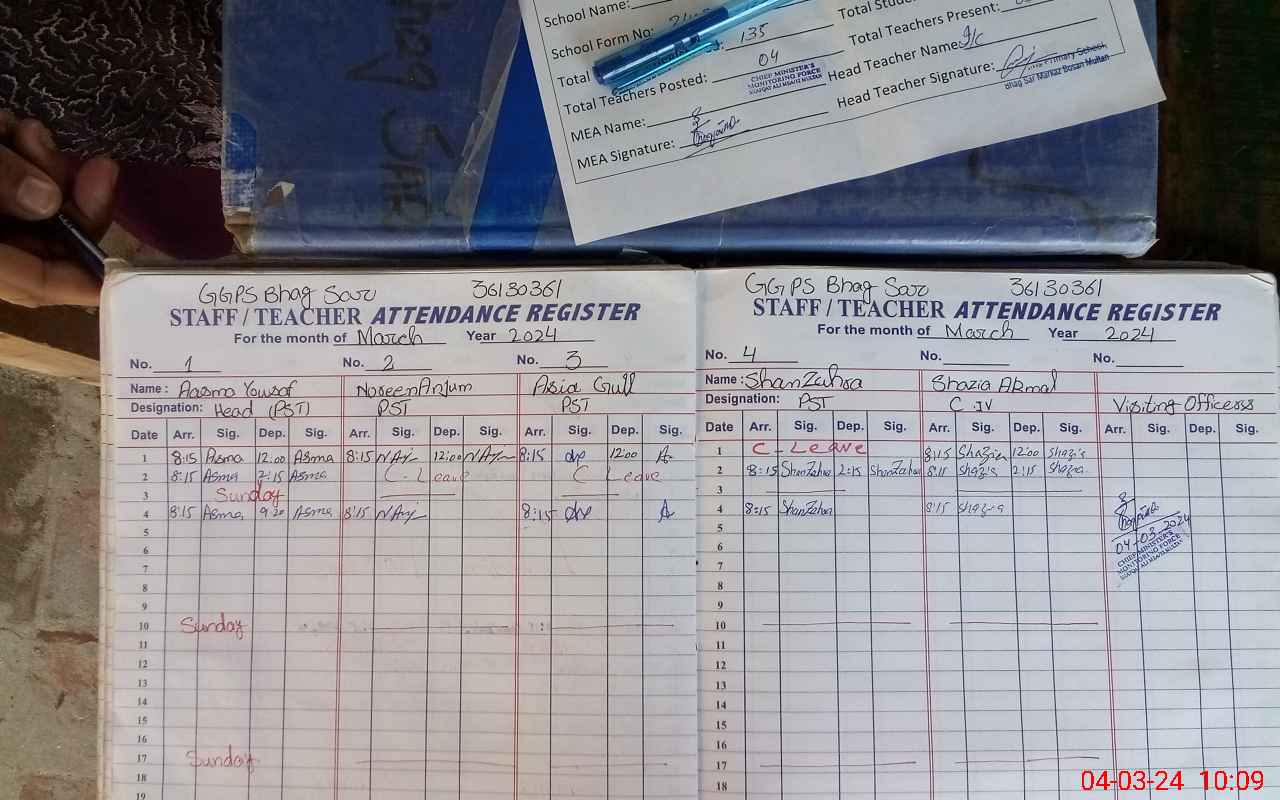 School Name:
School Form No:
Total 135
Total Teachers Posted: 04
MEA Name:
MEA Signature:
CHIEF MINISTER'S
MONITORING FORCE
Total Stude
Total Teachers Present:
Head Teacher Name: I/c
Head Teacher Signature:
Primary School
Bhag Sar Markaz Bosan Multan
GGPS Bhag Sar 36130361
STAFF / TEACHER ATTENDANCE REGISTER
For the month of March Year 2024
No. 1 No. 2 No. 3
Name: Aasma Yousaf Noreen Anjum Asia Gull
Designation: Head (PST) PST PST
Date Arr. Sig. Dep. Sig. Arr. Sig. Dep. Sig. Arr. Sig. Dep. Sig.
1 8:15 Asma 12:00 Asma 8:15 12:00 8:15 12:00
2 8:15 Asma 2:15 Asma C. Leave C Leave
3 Sunday
4 8:15 Asma 9 20 Asma 8:15 8:15
5
6
7
8
9
10 Sunday
11
12
13
14
15
16
17 Sunday
18
19
GGPS Bhag Sar 36130361
STAFF / TEACHER ATTENDANCE REGISTER
For the month of March Year 2024
No. 4 No. No.
Name: ShanZahra Shazia Akmal
Designation: PST C-IV Visiting Officerss
Date Arr. Sig. Dep. Sig. Arr. Sig. Dep. Sig. Arr. Sig. Dep. Sig.
1 C-Leave 8:15 Shazia 12:00 Shazia
2 8:15 ShanZahra 2:15 ShanZahra 8:15 Shazia 2:15 Shazia
3
4 8:15 ShanZahra 8:15 Shazia
5
6 04-03-2024
7 CHIEF MINISTER'S
MONITORING FORCE
8
9
10
11
12
13
14
15
16
17
18
04-03-24 10:09